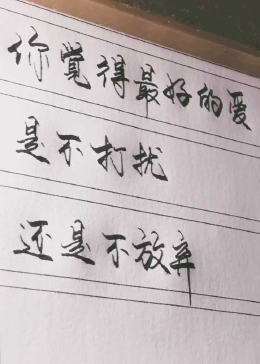 你覺得最好的爱
是不打扰
还是不放弃